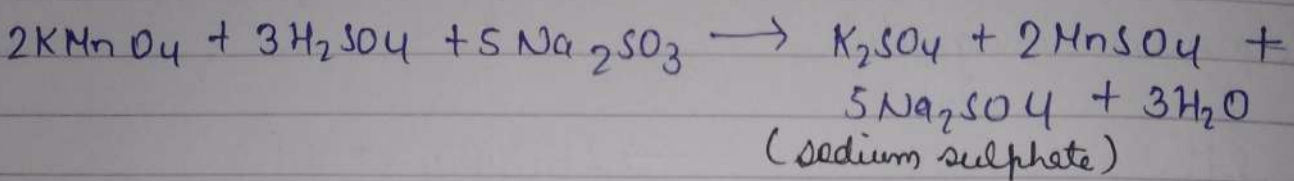 2KMnO4 + 3H2SO4 + 5Na2SO3 → K2SO4 + 2MnSO4 +
5Na2SO4 + 3H2O
(sodium sulphate)